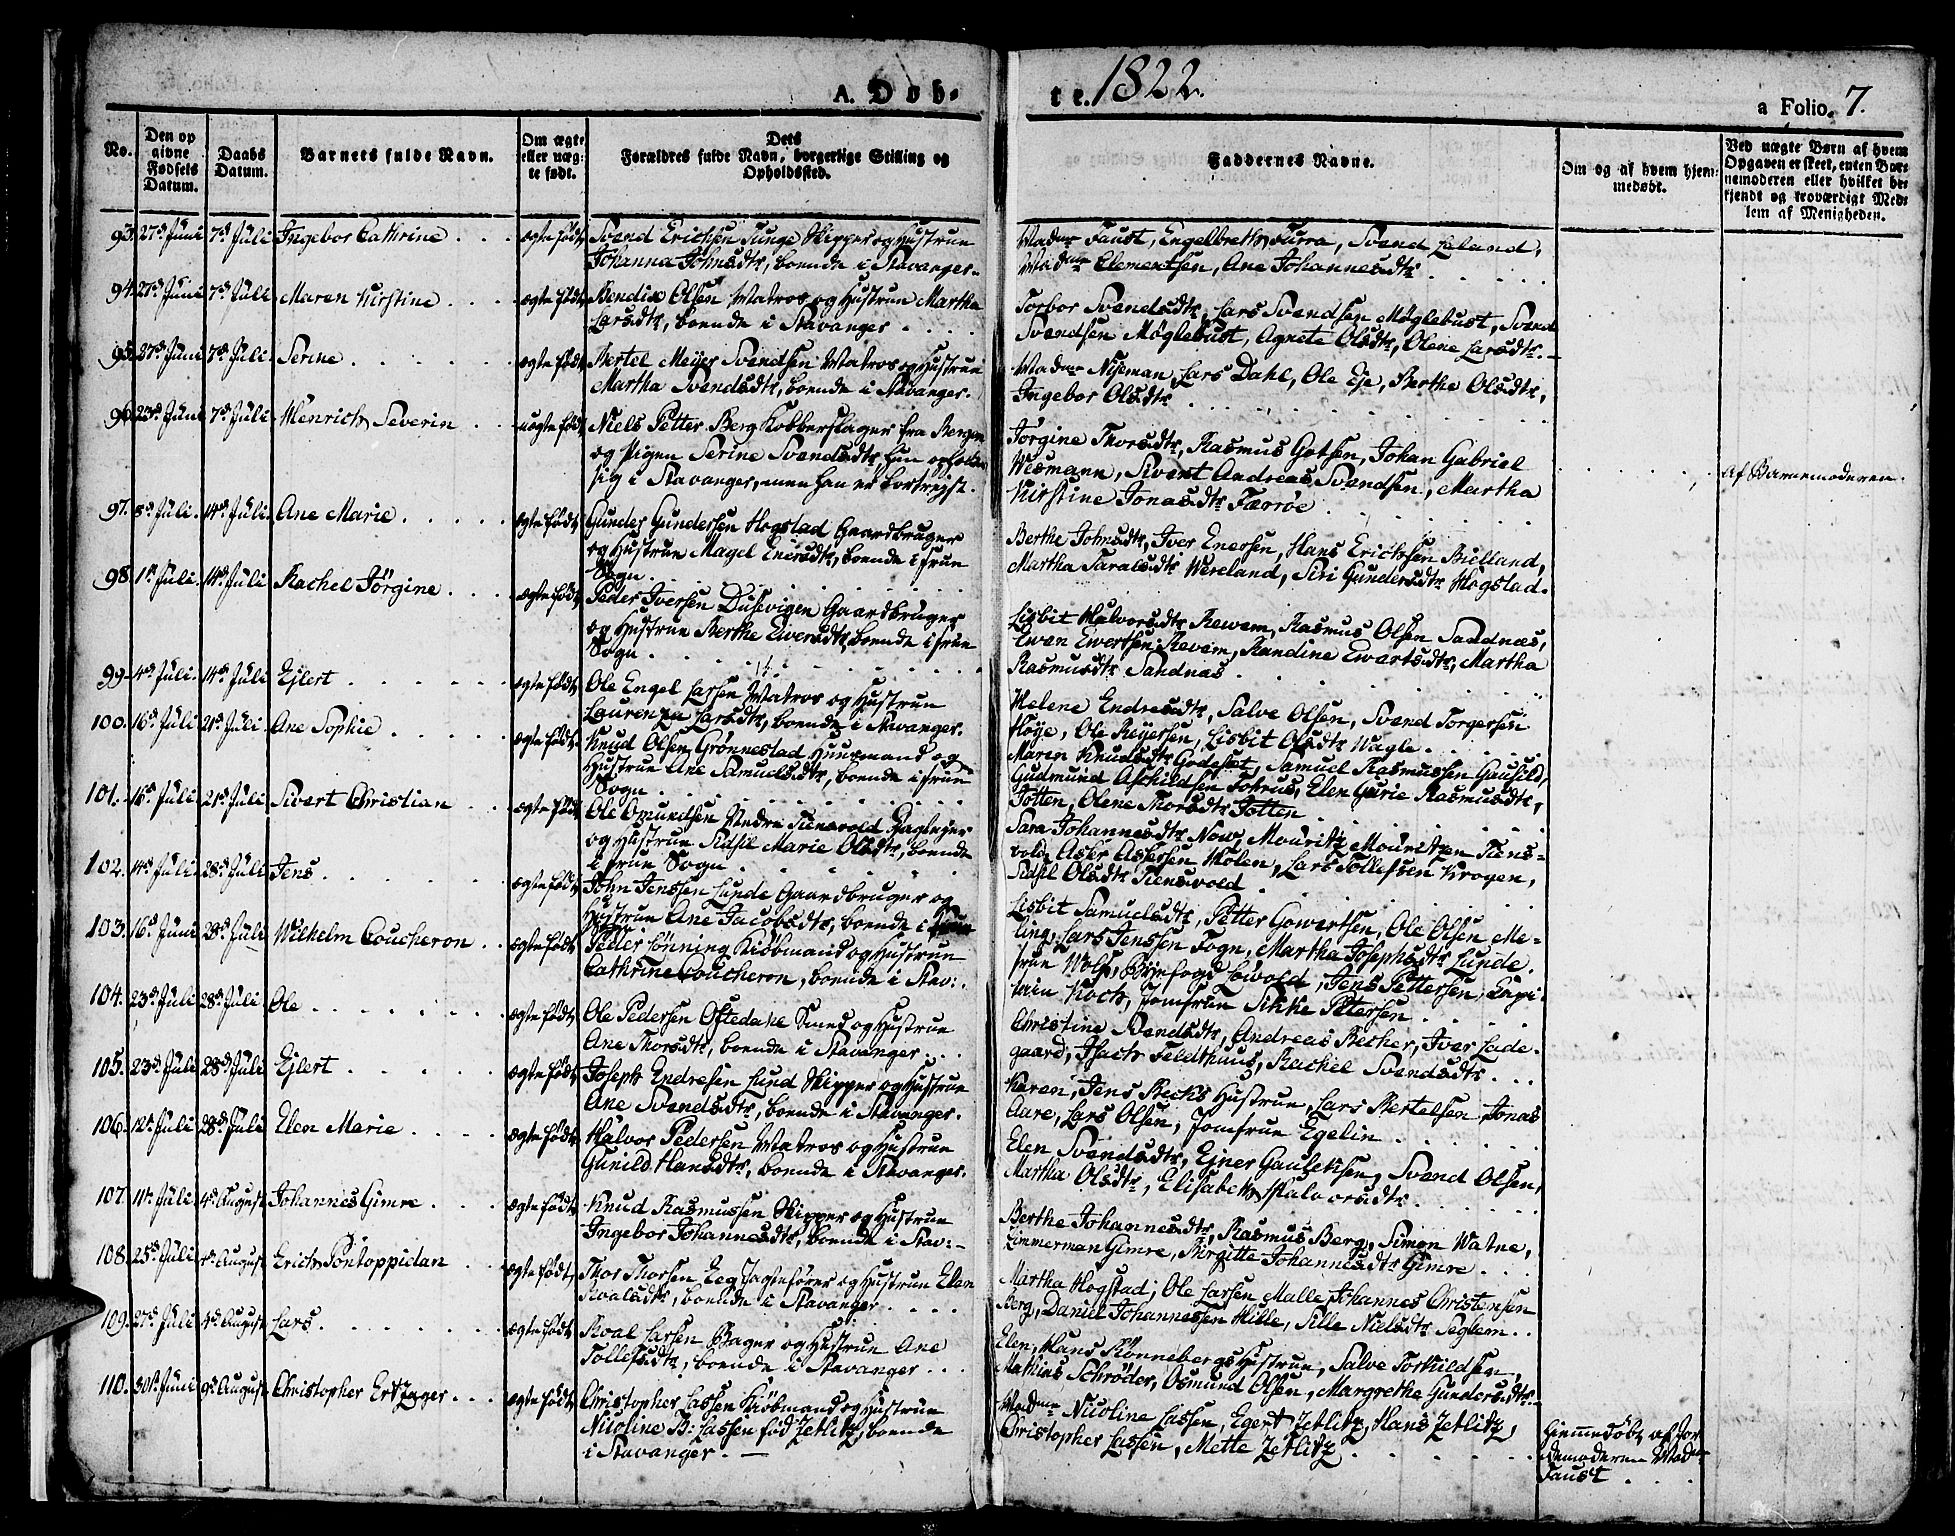 A. Döb-
te. 1822.
a Folio. 7.
No.
Den op
givne
Fødsels
Datum.
Daabs
Datum.
Barnets fulde Navn.
Om ægte
eller uæg-
te født.
Dets
Forældres fulde Navn, borgerlige Stilling og
Opholdssted.
Faddernes Navne.
Om og af hvem hjem-
medøbt.
Ved uægte Børn af hvem
Opgaven er skeet, enten Bar-
nemoderen eller hvilket be-
kjendt og troværdigt Med-
lem af Menigheden.
93. 27d Juni 7d Juli Ingebor Cathrine ægte født Svend Erichsen Tunge Skipper og Hustrue
Johanna Johnsdtr, boende i Stavanger.
Madme Faust, Engelbreth Furra, Svend Leland,
Madme Clementsen, Ane Johannesdtr
94. 27d Juni 7d Juli Maren Kirstine ægte født Bendix Olsen Matros og Hustrue Martha
Larsdtr, boende i Stavanger
Torbor Svendsdtr, Lars Svendsen Møglebust, Svend
Svendsen Møglebust, Agnete Olsdtr, Olene Larsdtr.
95. 27d Juni 7d Juli Serine ægte født Bertel Meyer Svendsen Matros og Hustrue
Martha Svendsdtr, boende i Stavanger.
Madme Nijeman, Lars Dahl, Ole Eje, Berthe Olsdtr,
Ingebor Olsdtr
96. 23d Juni 7d Juli Henrich Severin uægte født Niels Petter Berg Kobberslager fra Bergen
og Pigen Serine Svendsdtr, hun opholder
sig i Stavanger, men han er bortrejst.
Jørgine Thorsdtr, Rasmus Gotsen, Johan Gabriel
Wesmann, Sivert Andreas Svendsen, Martha
Kirstine Jonasdtr Færrøe
af Barnemoderen.
97. 8d Juli 14d Juli Ane Marie ægte født Gunder Gundersen Hogstad Gaardbruger
og Hustrue Magel Enersdtr, boende i frue
Sogn
Berthe Johnsdtr, Iver Enersen, Hans Erichsen Bielland,
Martha Taralsdtr Wereland, Siri Gundersdtr Hogstad.
98. 1st Juli 14d Juli Rachel Jörgine ægte født Peder Iversen Dusevigen Gaardbruger
og Hustrue Berthe Ewersdtr, boende i frue
Sogn
Lisbit Halvorsdtr Rewem, Rasmus Olsen Sandnæs,
Ewen Ewertsen Revem, Randine Ewertsdtr, Martha
Rasmusdtr Sandnæs
99. 4d Juli 14d Juli Ejlert ægte født Ole Engel Larsen Matros og Hustrue
Laurenza Larsdtr, boende i Stavanger.
Helene Endresdtr, Salve Olsen, Svend Torgersen
Høye, Ole Reyersen, Lisbit Olsdtr Wagle
100. 16d Juli 21d Juli Ane Sophie ægte født Knud Olsen Grønnestad Huusmand og
Hustrue Ane Samuelsdtr, boende i frue
Sogn
Maren Knudsdtr Godeset, Samuel Rasmussen Gausild,
Gudmund Aschildsen Fotrus, Elen Gurie Rasmusdtr,
Totten, Olene Thorsdtr Totten
101. 16d Juli 21d Juli Sivert Christian ægte født Ole Omundsen Nedre Tiensvold Daglejer
og Hustrue Sidsil Marie Olsdtr, boende
i frue Sogn
Sara Johannesdtr Now, Mouritz Mouritzen Tiens-
vold, Asbr Asbersen Holen, Lars Tollefsen Krogen,
Sidsil Olsdtr Tiensvold
102. 14d Juli 28d Juli Jens ægte født John Jenssen Lunde Gaardbruger og
Hustrue Ane Jacobsdtr, boende i
Lisbit Samuelsdtr, Petter Gowertsen, Ole Olsen Me-
ling, Lars Jenssen Fogn, Martha Josephsdtr Lunde.
103. 16d Juni 28d Juli Wilhelm Coucheron ægte født Peder Sönning Kiöbmand og Hustrue
Cathrine Coucheron, boende i Stav:
frue Wolf, Byefogd Löwold, Jens Pettersen, Capi-
tain Koch, Jomfrue Sikke Petersen
104. 23d Juli 28d Juli Ole ægte født Ole Pedersen Oftedahl Smed og Hustrue
Ane Thorsdtr, boende i Stavanger
Christine Svendsdtr, Andreas Becher, Iver Lade-
gaard, Isach Feldthuus, Rachel Svendsdtr
105. 23d Juli 28d Juli Ejlert ægte født Joseph Endresen Lund Skipper og Hustrue
Ane Svendsdtr, boende i Stavanger.
Karen, Jens Becks Hustrue, Lars Bertelsen, Jonas
Aare, Lars Olsen, Jomfrue Egelin
106. 12te Juli 28d Juli Elen Marie ægte født Halvor Pedersen Matros og Hustrue
Gunild Hansdtr, boende i Stavanger.
Elen Svendsdtr, Ejner Gauleksen, Svend Olsen,
Martha Olsdtr, Elisabeth Halvorsdtr.
107. 11te Juli 4d August Johannes Gimre ægte født Knud Rasmussen Skipper og Hustrue
Ingebor Johannesdtr, boende i Stav:
Berthe Johannesdtr, Rasmus Berg, Simon Watne,
Zimmerman Gimre, Birgitte Johannesdtr Gimre
108. 25d Juli 4d August Erich Pontoppidan ægte født Thor Thorsen Eeg Jagtefører og Hustrue Elen
Roalsdtr, boende i Stavanger
Martha Hogstad, Ole Larsen Malle, Johannes Christensen
Berg, Daniel Johannessen Hille, Sille Nielsdtr Seglem
109. 27d Juli 4d August Lars ægte født Roal Larsen Bager og Hustrue Ane
Tollefsdtr, boende i Stavanger
Elen, Hans Rönnebergs Hustrue, Salve Torkildsen,
Mathias Schrøder, Osmund Olsen, Margrethe Gundersdtr
110. 30te Juni 9d August Christopher Ertzager ægte født Christopher Lassen Kiöbmand og Hustrue
Nicoline B: Lassen fød Zetlitz, boende
i Stavanger
Madme Nicoline Lassen, Egert Zetlitz, Hans Zetlitz,
Christopher Lassen, Mette Zetlitz
Hiemmedöbt af Jor-
demoderen Madme
Faust